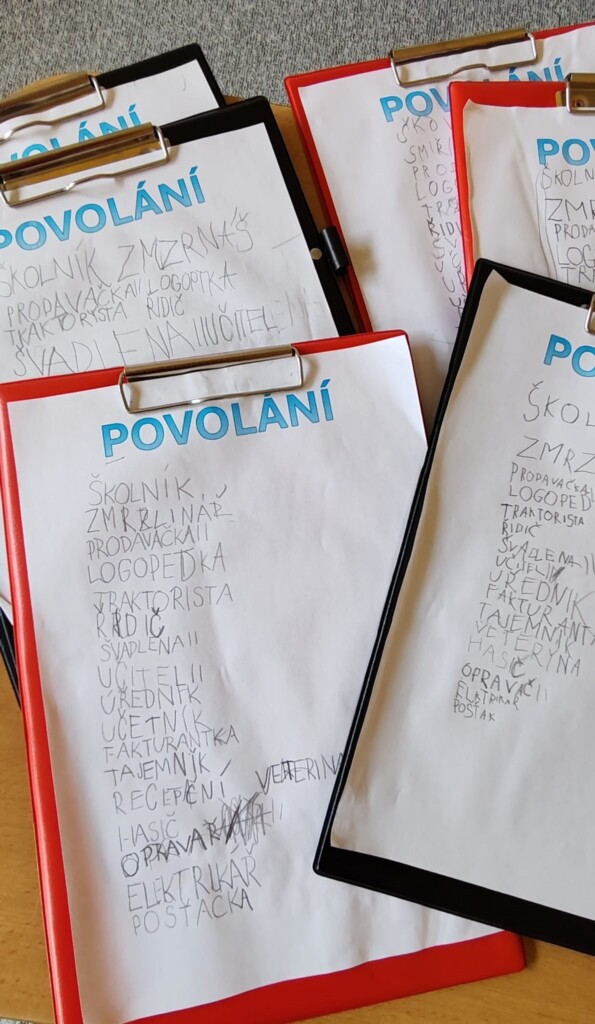 POVOLÁNÍ
POVOLÁNÍ
ŠKOLNÍK ZMZRNAŠ
PRODAVAČKAII LOGOPTKA
TRAKTORISTA ŘIDIČ
ŠVADLENAIIUČITEL
POVOLÁNÍ
ŠKO
SMÍ
PRO
LOG
PO
ŠKOLN
ZMR
PRODA
LOG
POVOLÁNÍ
ŠKOLNÍK
ZMRZLINÁŘ
PRODAVAČKAII
LOGOPEDKA
TRAKTORISTA
ŘIDIČ
ŠVADLENAII
UČITELII
ÚŘEDNÍK
ÚČETNÍK
FAKTURANTKA
TAJEMNÍK
RECEPČNÍ VETERINA
HASIČ
OPRAVAŘ
ELEKTRIKÁŘ
POŠTAČKA
PO
ŠKOL
ZMRZ
PRODAVAČKAI
LOGOPED
TRAKTORISTA
ŘIDIČ
ŠVADLENA
UČITELI
ÚŘEDNÍK
FAKTURANT
TAJEMNÍK
VETERYNA
HASIČ
OPRAVAČII
ELEKTRIKAR
POŠŤAK